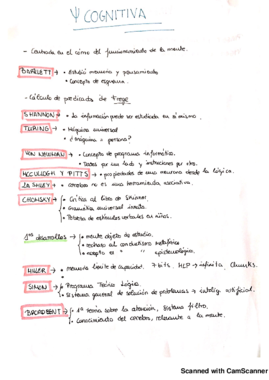 Ψ COGNITIVA
- Centrada en el cómo del funcionamiento de la mente.
BARLETT → • Estudió memoria y pensamiento
• Concepto de esquema.
- Cálculo de predicados de Frege
SHANNON → • La información puede ser estudiada en sí misma.
TURING → • Máquina universal
• ¿máquina = persona?
VON NEUMAN → • Concepto de programa informático.
• Datos por un lado y instrucciones por otro.
MCCULLOCH Y PITTS → • propiedades de una neurona desde la lógica.
LASHLEY → • cerebro no es una herramienta asociativa.
CHOMSKY → • Critica al libro de Skinner.
• Gramática universal innata.
• Teoría de estímulos verbales en niños.
1os desarrollos → • mente objeto de estudio.
• rechazo al conductismo metafísico
• acepto el " " epistemológico.
MILLER → • memoria límite de capacidad. 7 bits. MLP → infinita. Chunks.
SIMON → • Programa Teórico Lógico.
• Sistema general de solución de problemas → intelig. artificial.
BROADBENT → • 1ª teoría sobre la atención, Sistema filtro.
• Conocimiento del cerebro, relevante a la mente.
Scanned with CamScanner